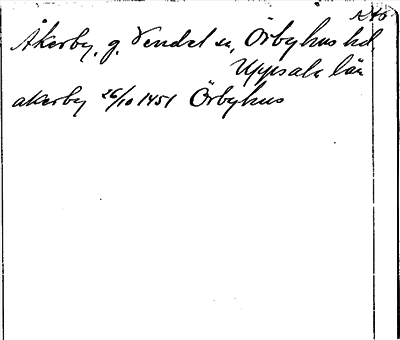 Åkerby, g. Vendel sn, Örbyhus hd
Uppsala län
akerby 26/10 1451 Örbyhus